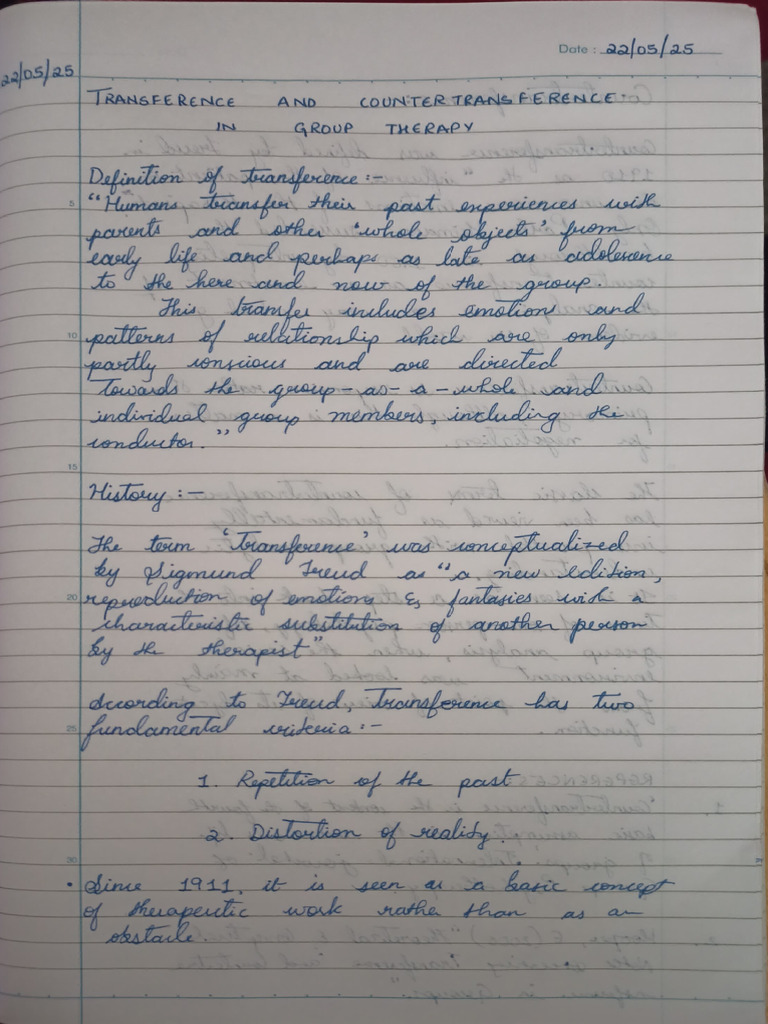 Date : 22/05/25
22/05/25
TRANSFERENCE AND COUNTERTRANSFERENCE
IN GROUP THERAPY
Definition of transference :-
"Humans transfer their past experiences with
5
parents and other 'whole objects' from
early life and perhaps as late as adolescence
to the here and now of the group.
This transfer includes emotions and
10
patterns of relationship which are only
partly conscious and are directed
towards the group-as-a-whole and
individual group members, including the
conductor."
15
History :-
The term 'transference' was conceptualized
by Sigmund Freud as "a new edition,
20
reproduction of emotions & fantasies with a
characteristic substitution of another person
by the therapist"
According to Freud, transference has two
25
fundamental criteria :-
1. Repetition of the past
2. Distortion of reality.
30
• Since 1911, it is seen as a basic concept
of therapeutic work rather than as an
obstacle.